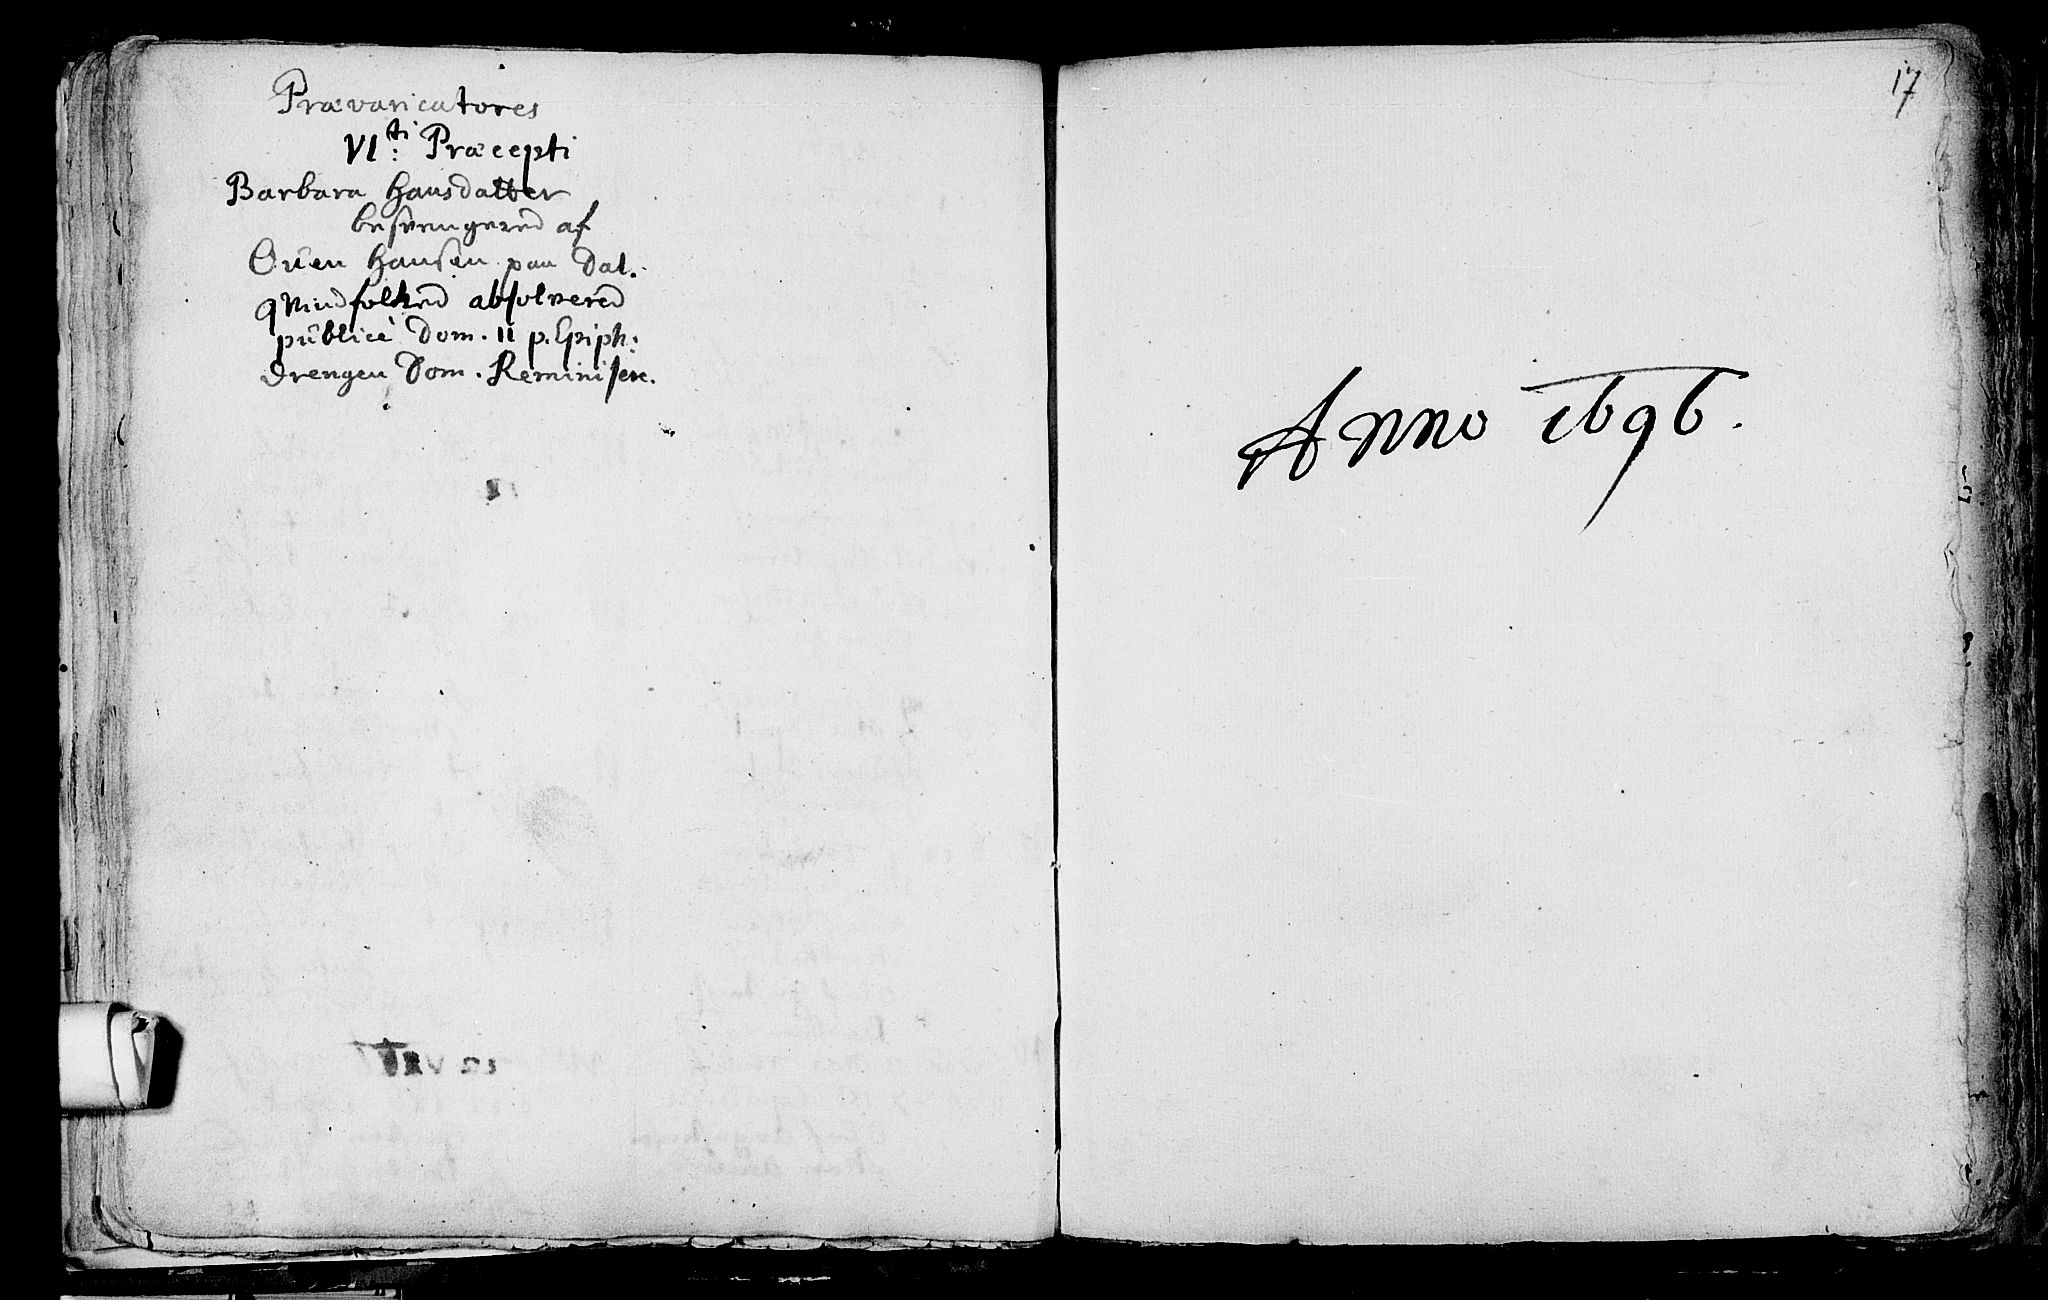 Prævaricatores
VI:ti Præcepti
Barbara Hansdatter
besvengered af
Ouen Hansen paa Dal.
qvindfolked absolvered
publicè Dom. II p. Epiph:
Drengen Dom. Reminiscere.
17
Anno 1696.